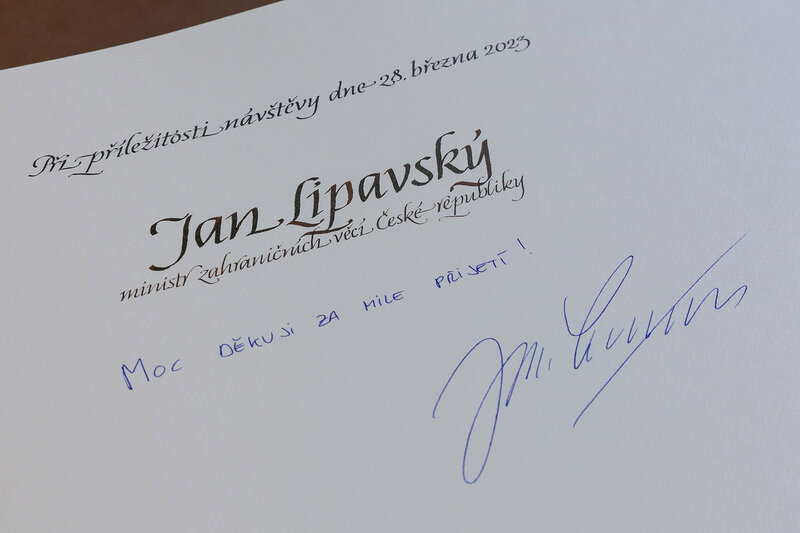 Při příležitosti návštěvy dne 28. března 2023
Jan Lipavský
ministr zahraničních věcí České republiky
MOC DĚKUJI ZA MILE PŘIJETÍ!